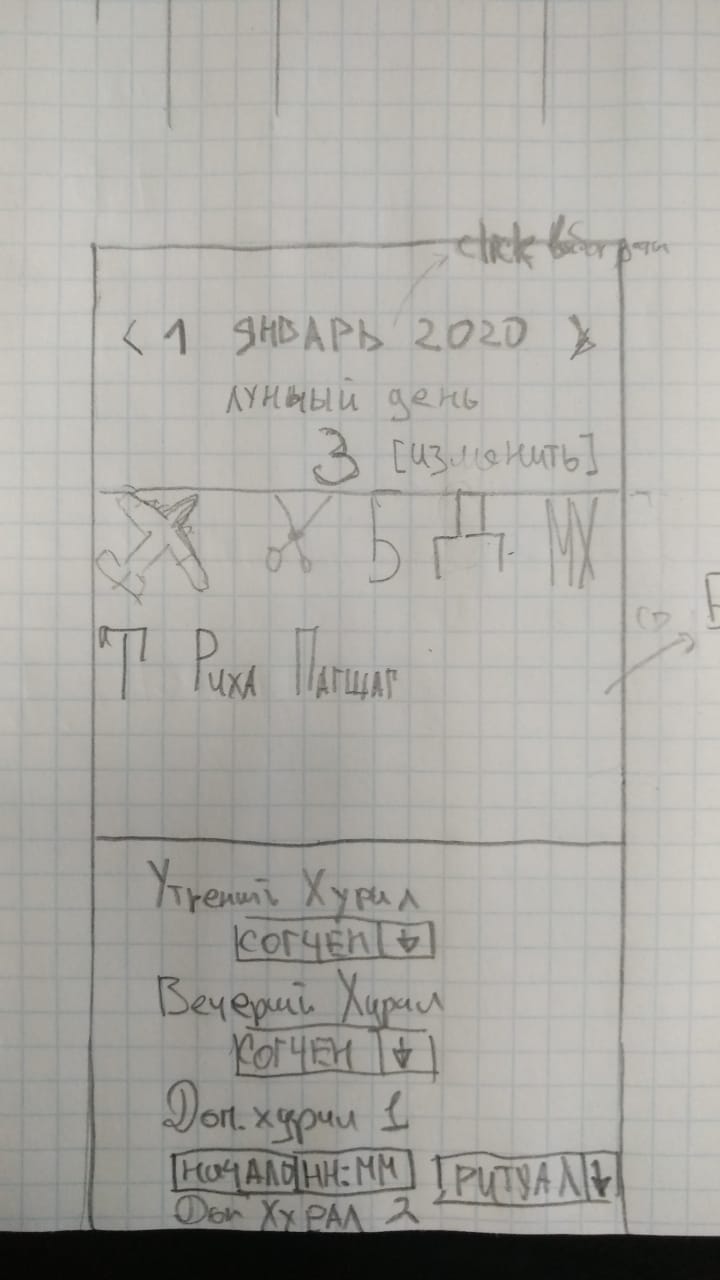 click выбор даты
< 1 ЯНВАРЬ 2020 >
лунный день
3 [изменить]
Б Д МХ
Т Риха Пагщаг
Утрений Хурил
КОГЧЕН ↓
Вечерий Хурил
КОГЧЕН ↓
Доп. хурил 1
НАЧАЛО НН:ММ РИТУАЛ ↓
Доп ХУРАЛ 2